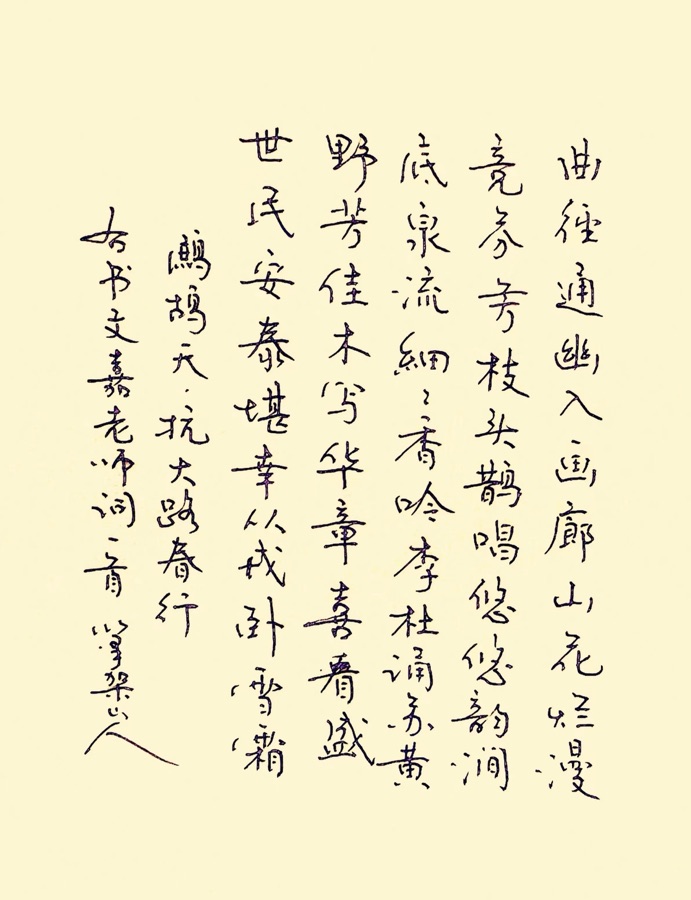 曲径通幽入画廊山花烂漫
竞芬芳枝头鹊唱悠悠韵涧
底泉流细々香吟李杜诵苏黄
野芳佳木写华章喜看盛
世民安泰堪幸从戎卧雪霜
鹧鸪天·抗大路春行
右书文嘉老师词一首 笔架山人